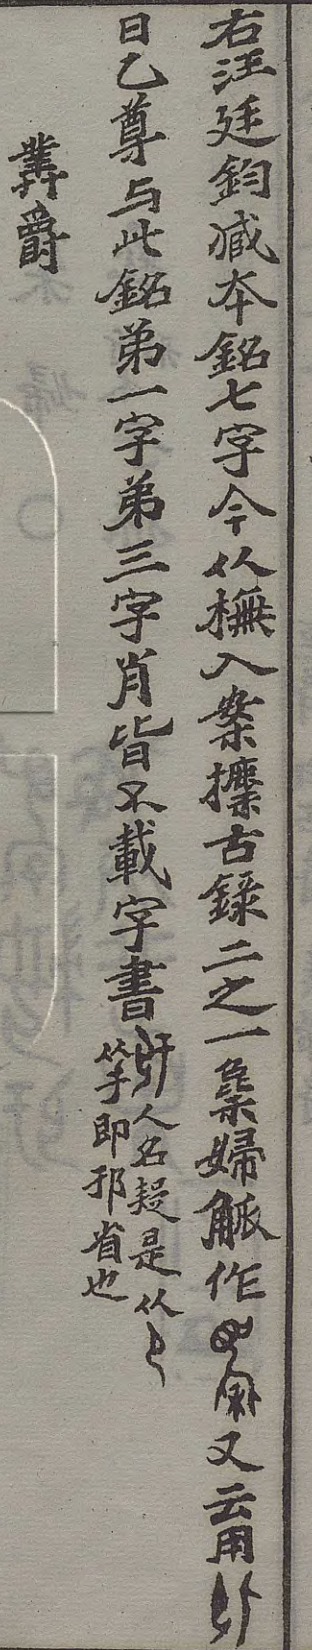 右汪廷鈞臧本銘七字今从橅入案攈古錄二之一彝婦觚作又云用
日乙尊与此銘弟一字弟三字肖皆不載字書人名疑是从
等即邘省也
爵